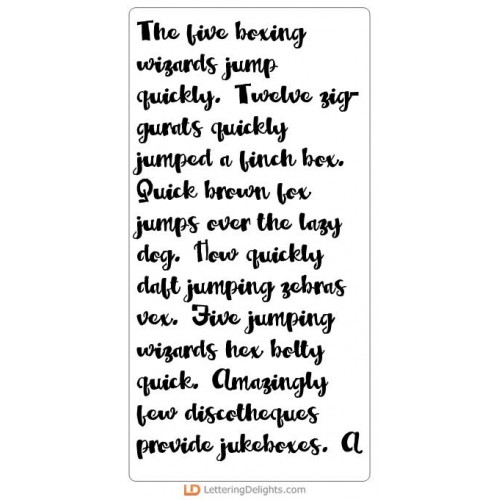 The five boxing
wizards jump
quickly. Twelve zig-
gurats quickly
jumped a finch box.
Quick brown fox
jumps over the lazy
dog. How quickly
daft jumping zebras
vex. Five jumping
wizards hex bolty
quick. Amazingly
few discotheques
provide jukeboxes. A
LD LetteringDelights.com